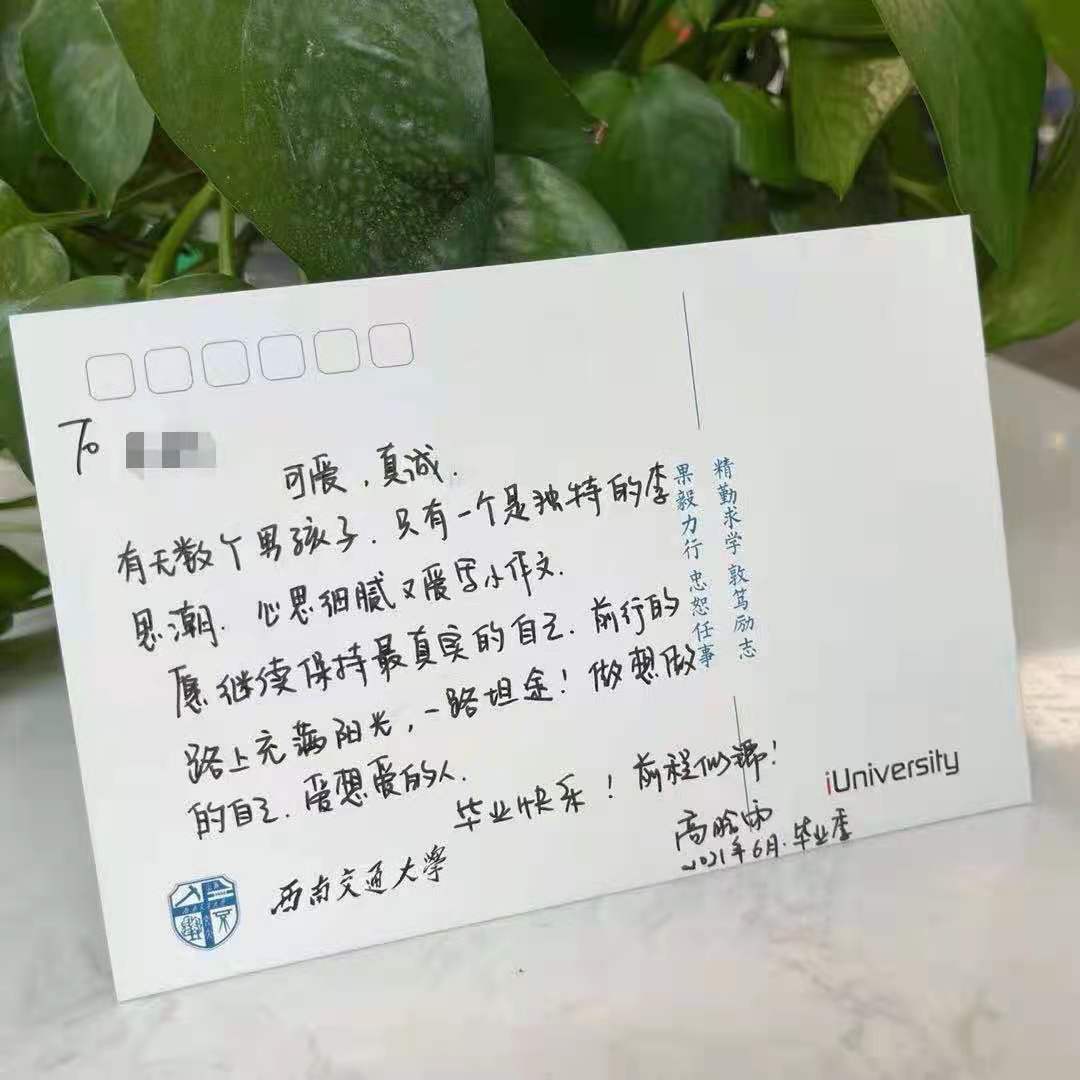 To
可爱，真诚.
有无数个男孩子.只有一个是独特的李
思潮.心思细腻又爱写小作文.
愿继续保持最真实的自己.前行的
路上充满阳光，一路坦途！做想做
的自己.爱想爱的人.
毕业快乐！前程似锦！
高晗
2021年6月.毕业季
精勤求学 敦笃励志
果毅力行 忠恕任事
iUniversity
西南交通大学